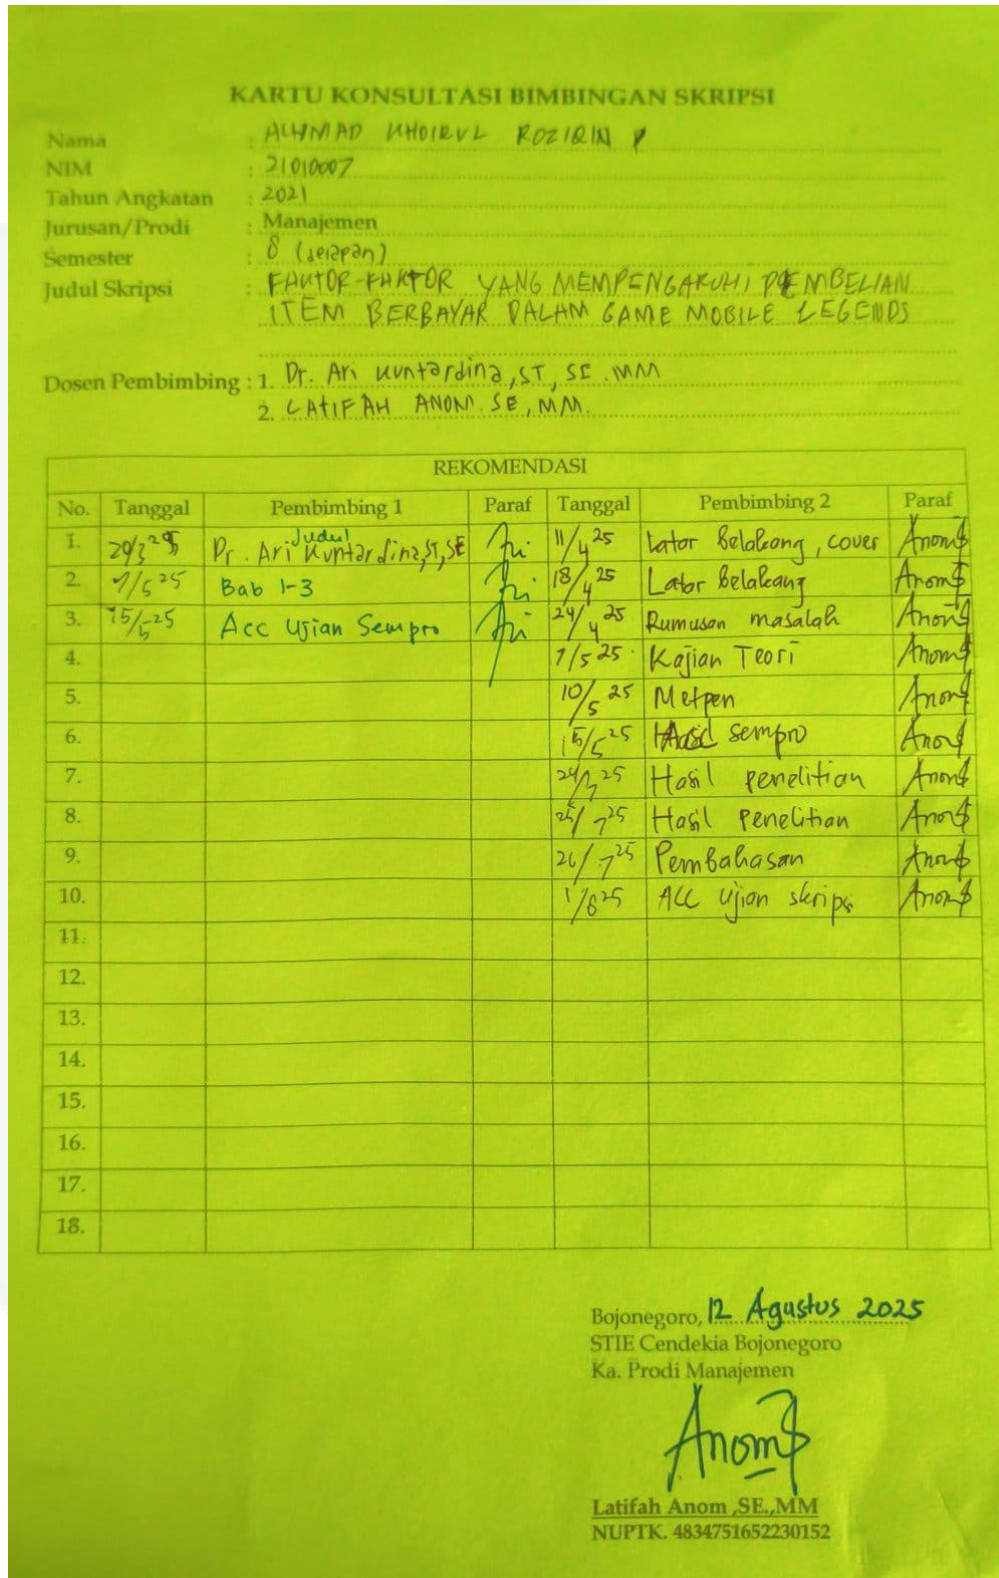 KARTU KONSULTASI BIMBINGAN SKRIPSI
Nama : AHMAD KHOIRUL ROZIQIN
NIM : 21010007
Tahun Angkatan : 2021
Jurusan/Prodi : Manajemen
Semester : 8 (delapan)
Judul Skripsi : FAKTOR-FAKTOR YANG MEMPENGARUHI PEMBELIAN
ITEM BERBAYAR DALAM GAME MOBILE LEGENDS
Dosen Pembimbing : 1. Dr. Ari Kuntardina, ST, SE. MM
2. LATIFAH ANOM. SE, MM.
REKOMENDASI
No. Tanggal Pembimbing 1 Paraf Tanggal Pembimbing 2 Paraf
Judul
1. Dr. Ari Kuntardina, ST, SE Ari 11/4 25 Lator Belakang, cover Anom
2. 7/5 25 Bab 1-3 Ari 18/4 25 Lator Belakang Anom
3. 15/5-25 Acc Ujian Sempro Ari 24/4 25 Rumusan masalah Anom
4. 7/5 25 Kajian Teori Anom
5. 10/5 25 Metpen Anom
6. 15/5 25 sempro Anom
7. Hasil penelitian Anom
8. 25/7 25 Hasil Penelitian Anom
9. 26/7 25 Pembahasan Anom
10. 1/8 25 ACC Ujian skripsi Anom
11.
12.
13.
14.
15.
16.
17.
18.
Bojonegoro, 12 Agustus 2025
STIE Cendekia Bojonegoro
Ka. Prodi Manajemen
Anom
Latifah Anom ,SE.,MM
NUPTK. 4834751652230152